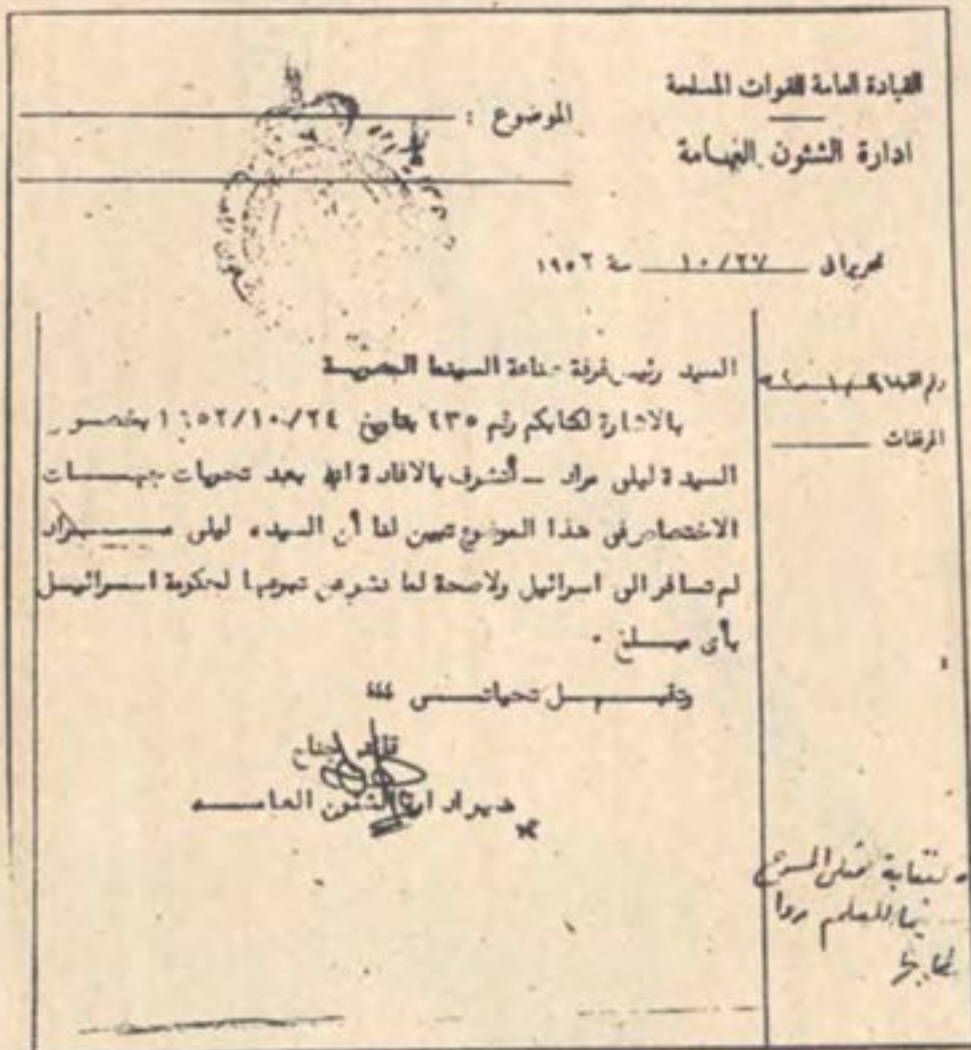 القيادة العامة للقوات المسلحة
ادارة الشئون العامة
الموضوع :
تحريرا فى ١٠/٢٧ سنة ١٩٥٢
رقم القيد
المرفقات
السيد رئيس غرفة صناعة السينما المصرية
بالاشارة لكتابكم رقم ٤٣٥ بتاريخ ١٩٥٢/١٠/٢٤ بخصوص
السيدة ليلى مراد ــ أتشرف بالافادة انه بعد تحريات جهات
الاختصاص فى هذا الموضوع تبين لنا أن السيده ليلى مراد
لم تسافر الى اسرائيل ولاصحة لما نشر عن تبرعها لحكومة اسرائيل
بأى مبلغ ٠
وتقبل تحياتى ،،،
قائد جناح
مدير ادارة الشئون العامه